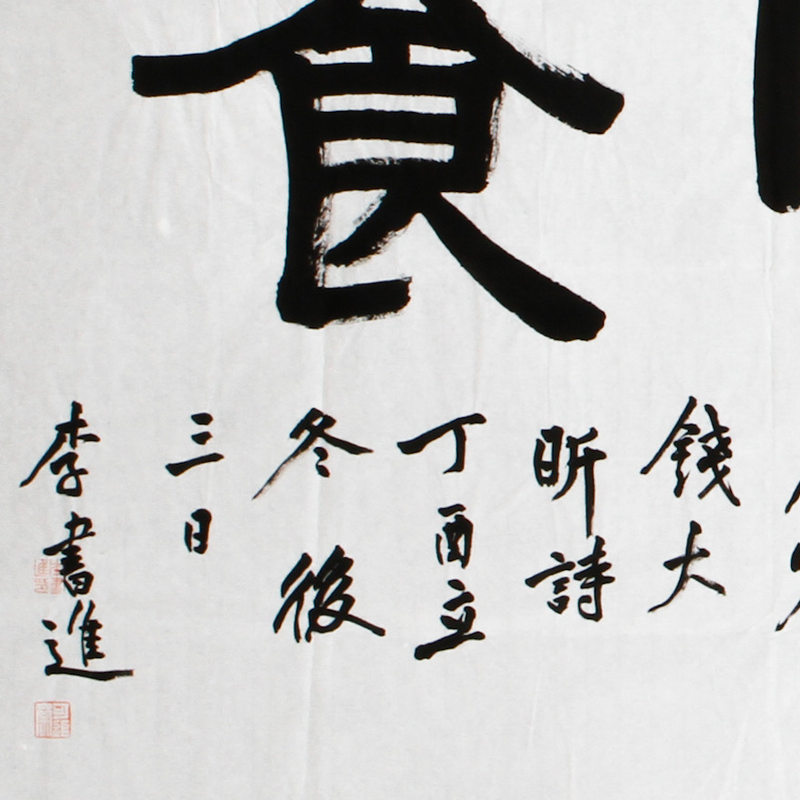 食
錢大
昕詩
丁酉立
冬後
三日
李書進